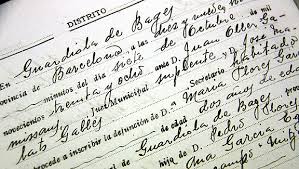 DISTRITO
En Guardiola de Bages
provincia de Barcelona, a las diez y nueve ho
minutos del día siete de Octubre de mil
novecientos treinta y ocho ante D. Juan Oller Ga-
missans Juez Municipal suplente y D. Jose Ma-
bats Gallés Secretario habilitado
procede a inscribir la defunción de D.ª Maria Flores Gar
de edad dos años
Guardiola de Bages
hija de D. Pedro Flores
Ana Garcia